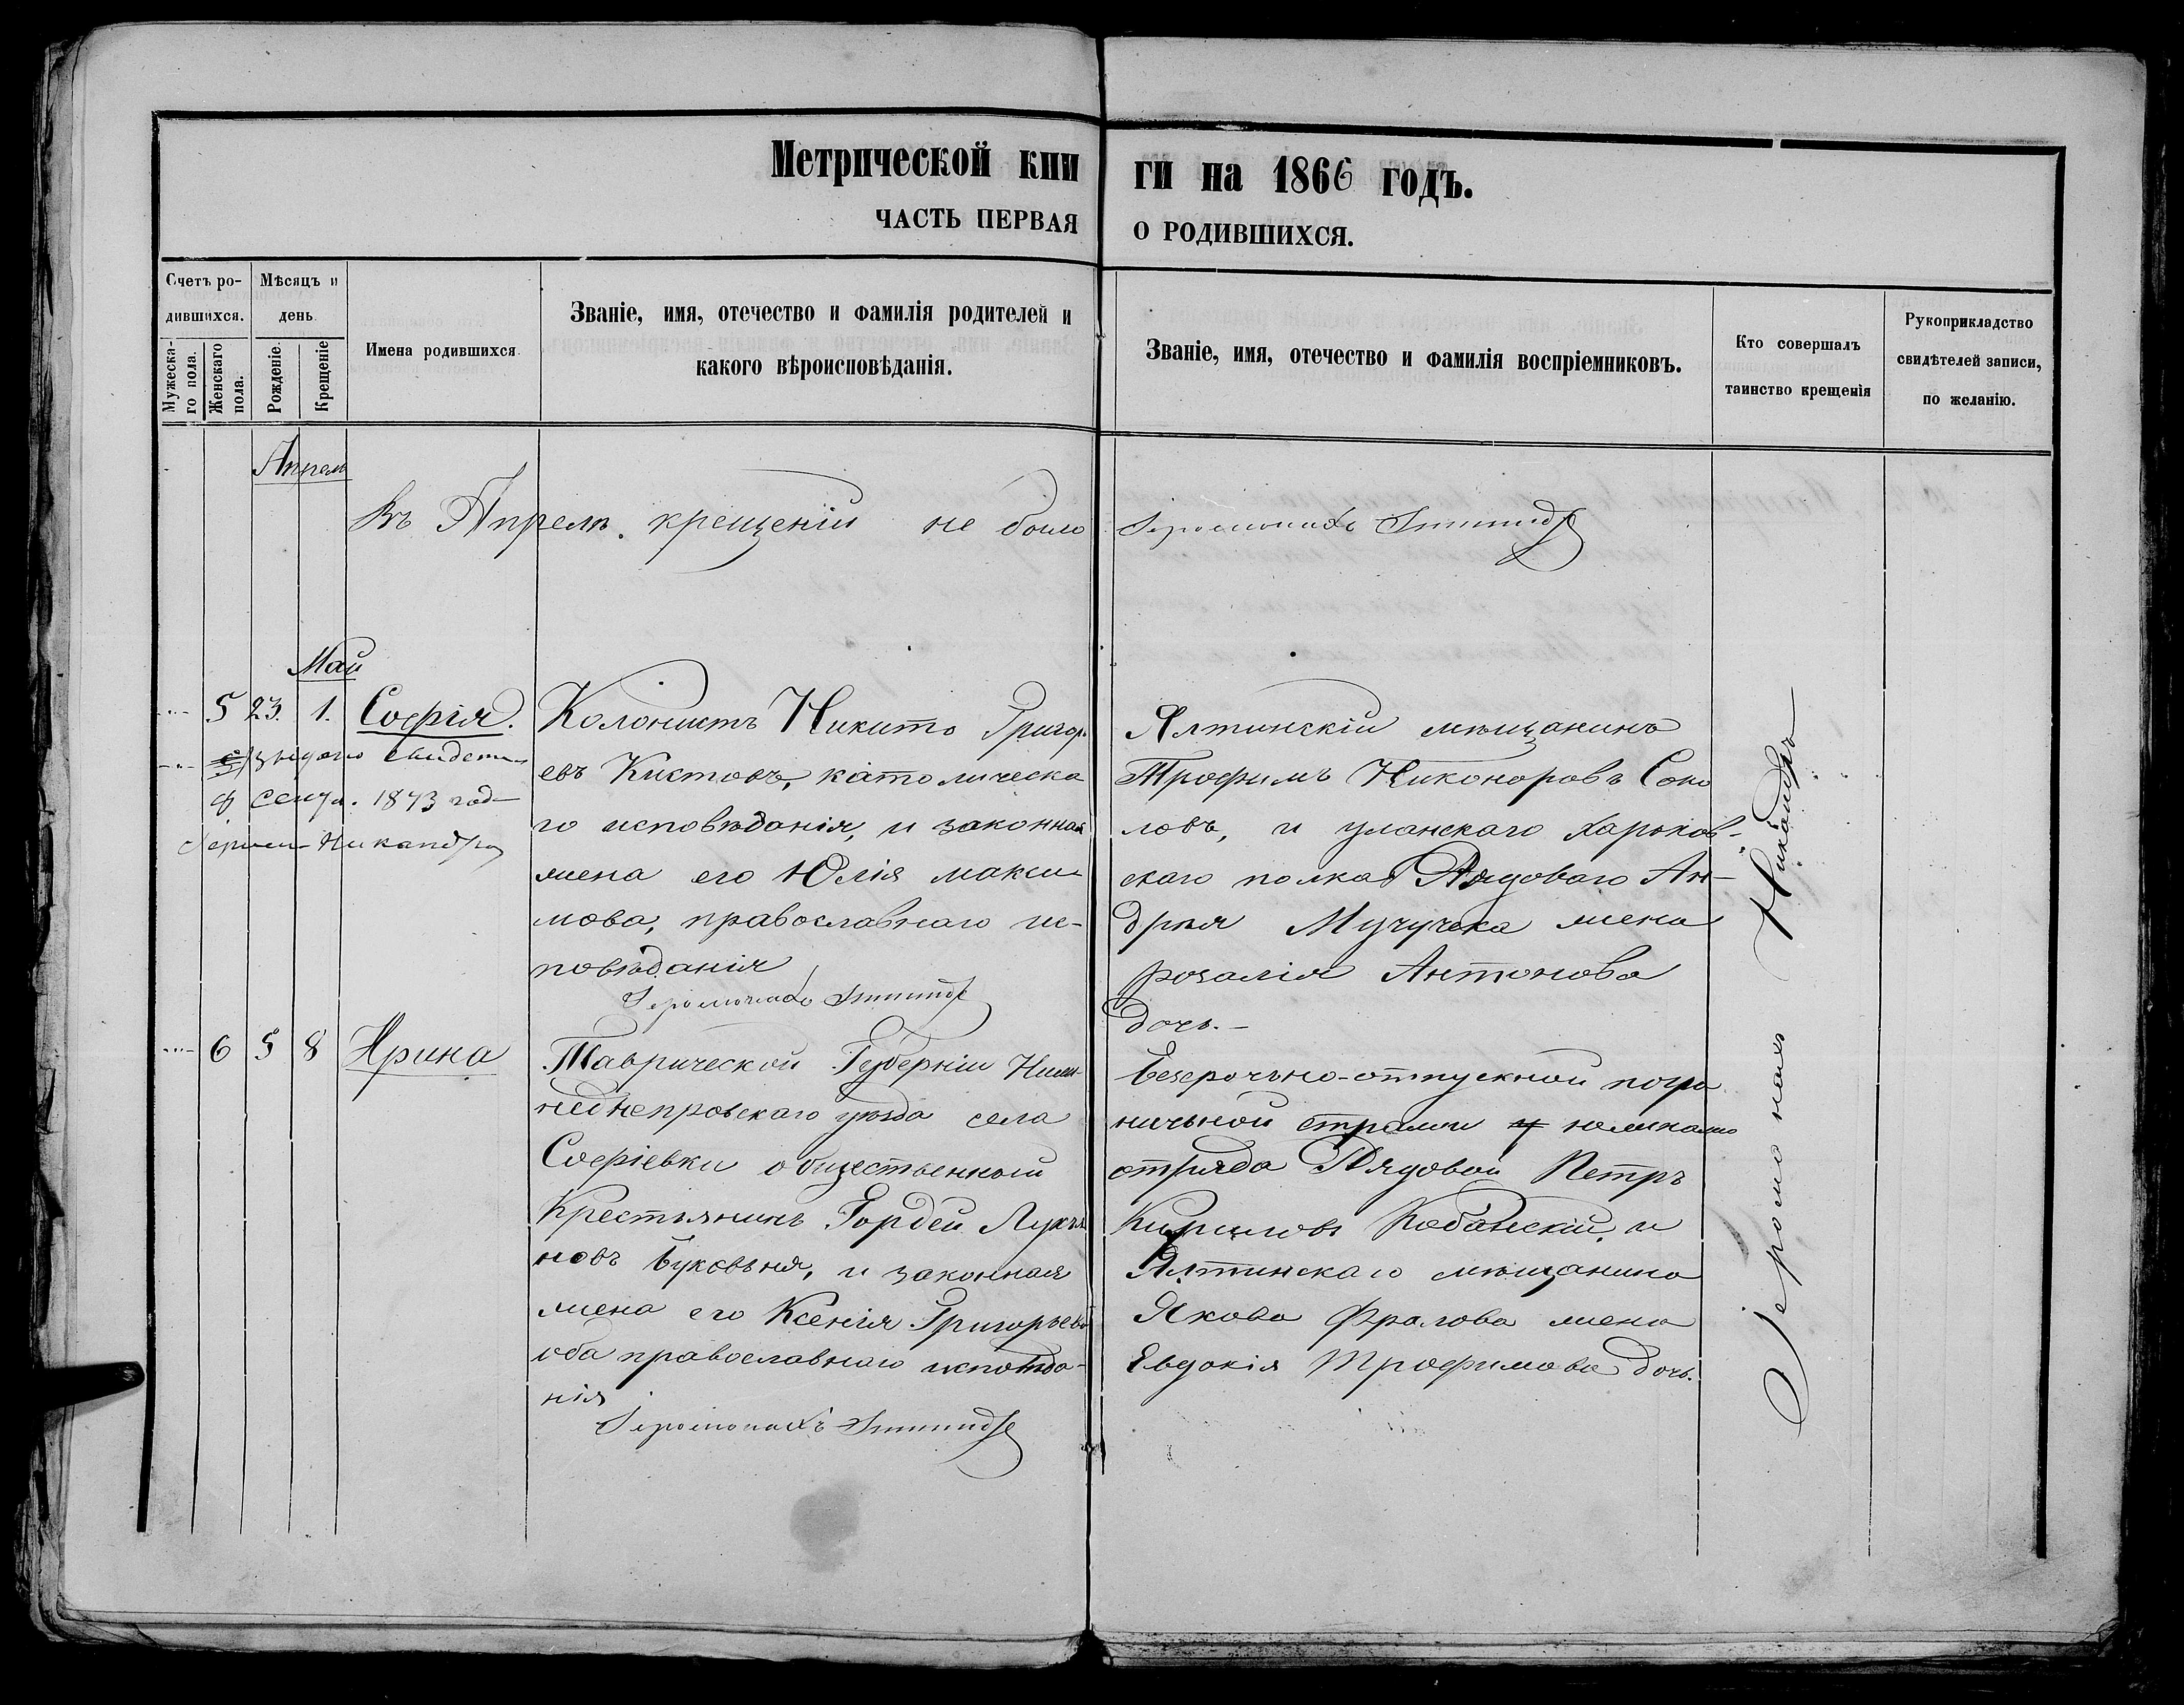 Метрической кни ги на 1866 годъ.
ЧАСТЬ ПЕРВАЯ О РОДИВШИХСЯ.
Счетъ ро-
дившихся.
Мужеска-
го пола.
Женскаго
пола.
Мѣсяцъ и
день.
Рожденіе.
Крещеніе
Имена родившихся.
Званіе, имя, отечество и фамилія родителей и
какого вѣроисповѣданія.
Званіе, имя, отечество и фамилія воспріемниковъ.
Кто совершалъ
таинство крещенія
Рукоприкладство
свидѣтелей записи,
по желанію.
Апрель
Въ Апрелѣ крещеній не было Іеромонахъ
Май
5 23. 1. Софія.
выдано свидет
1873 год
Никандръ
Колонистъ Никита Григор
евъ Кистовъ, католическа
го исповѣданія, и законная
жена его Юлія макси
мова, православнаго ис-
повѣданія
Іеромонахъ
Ялтинскій мѣщанинъ
Трофимъ Никоноровъ Соко
ловъ, и уланскаго Харьков-
скаго полка Рядоваго Ан-
дрея жена
розалія Антонова
дочь.-
6 5 8 Ирина
Таврической Губерніи
днепровскаго уѣзда села
Софіевки общественный
Крестьянинъ Гордей Лукья
новъ и законная
жена его Ксенія Григорьева
оба православнаго исповѣда-
нія
Іеромонахъ
Безсрочно-отпускной погра
ничьной стражи
отряда Рядовой Петръ
Кириловъ и
Ялтинскаго мѣщанина
Якова Фролова жена
Евдокія Трофимова дочь.
Іеромонахъ Никандръ